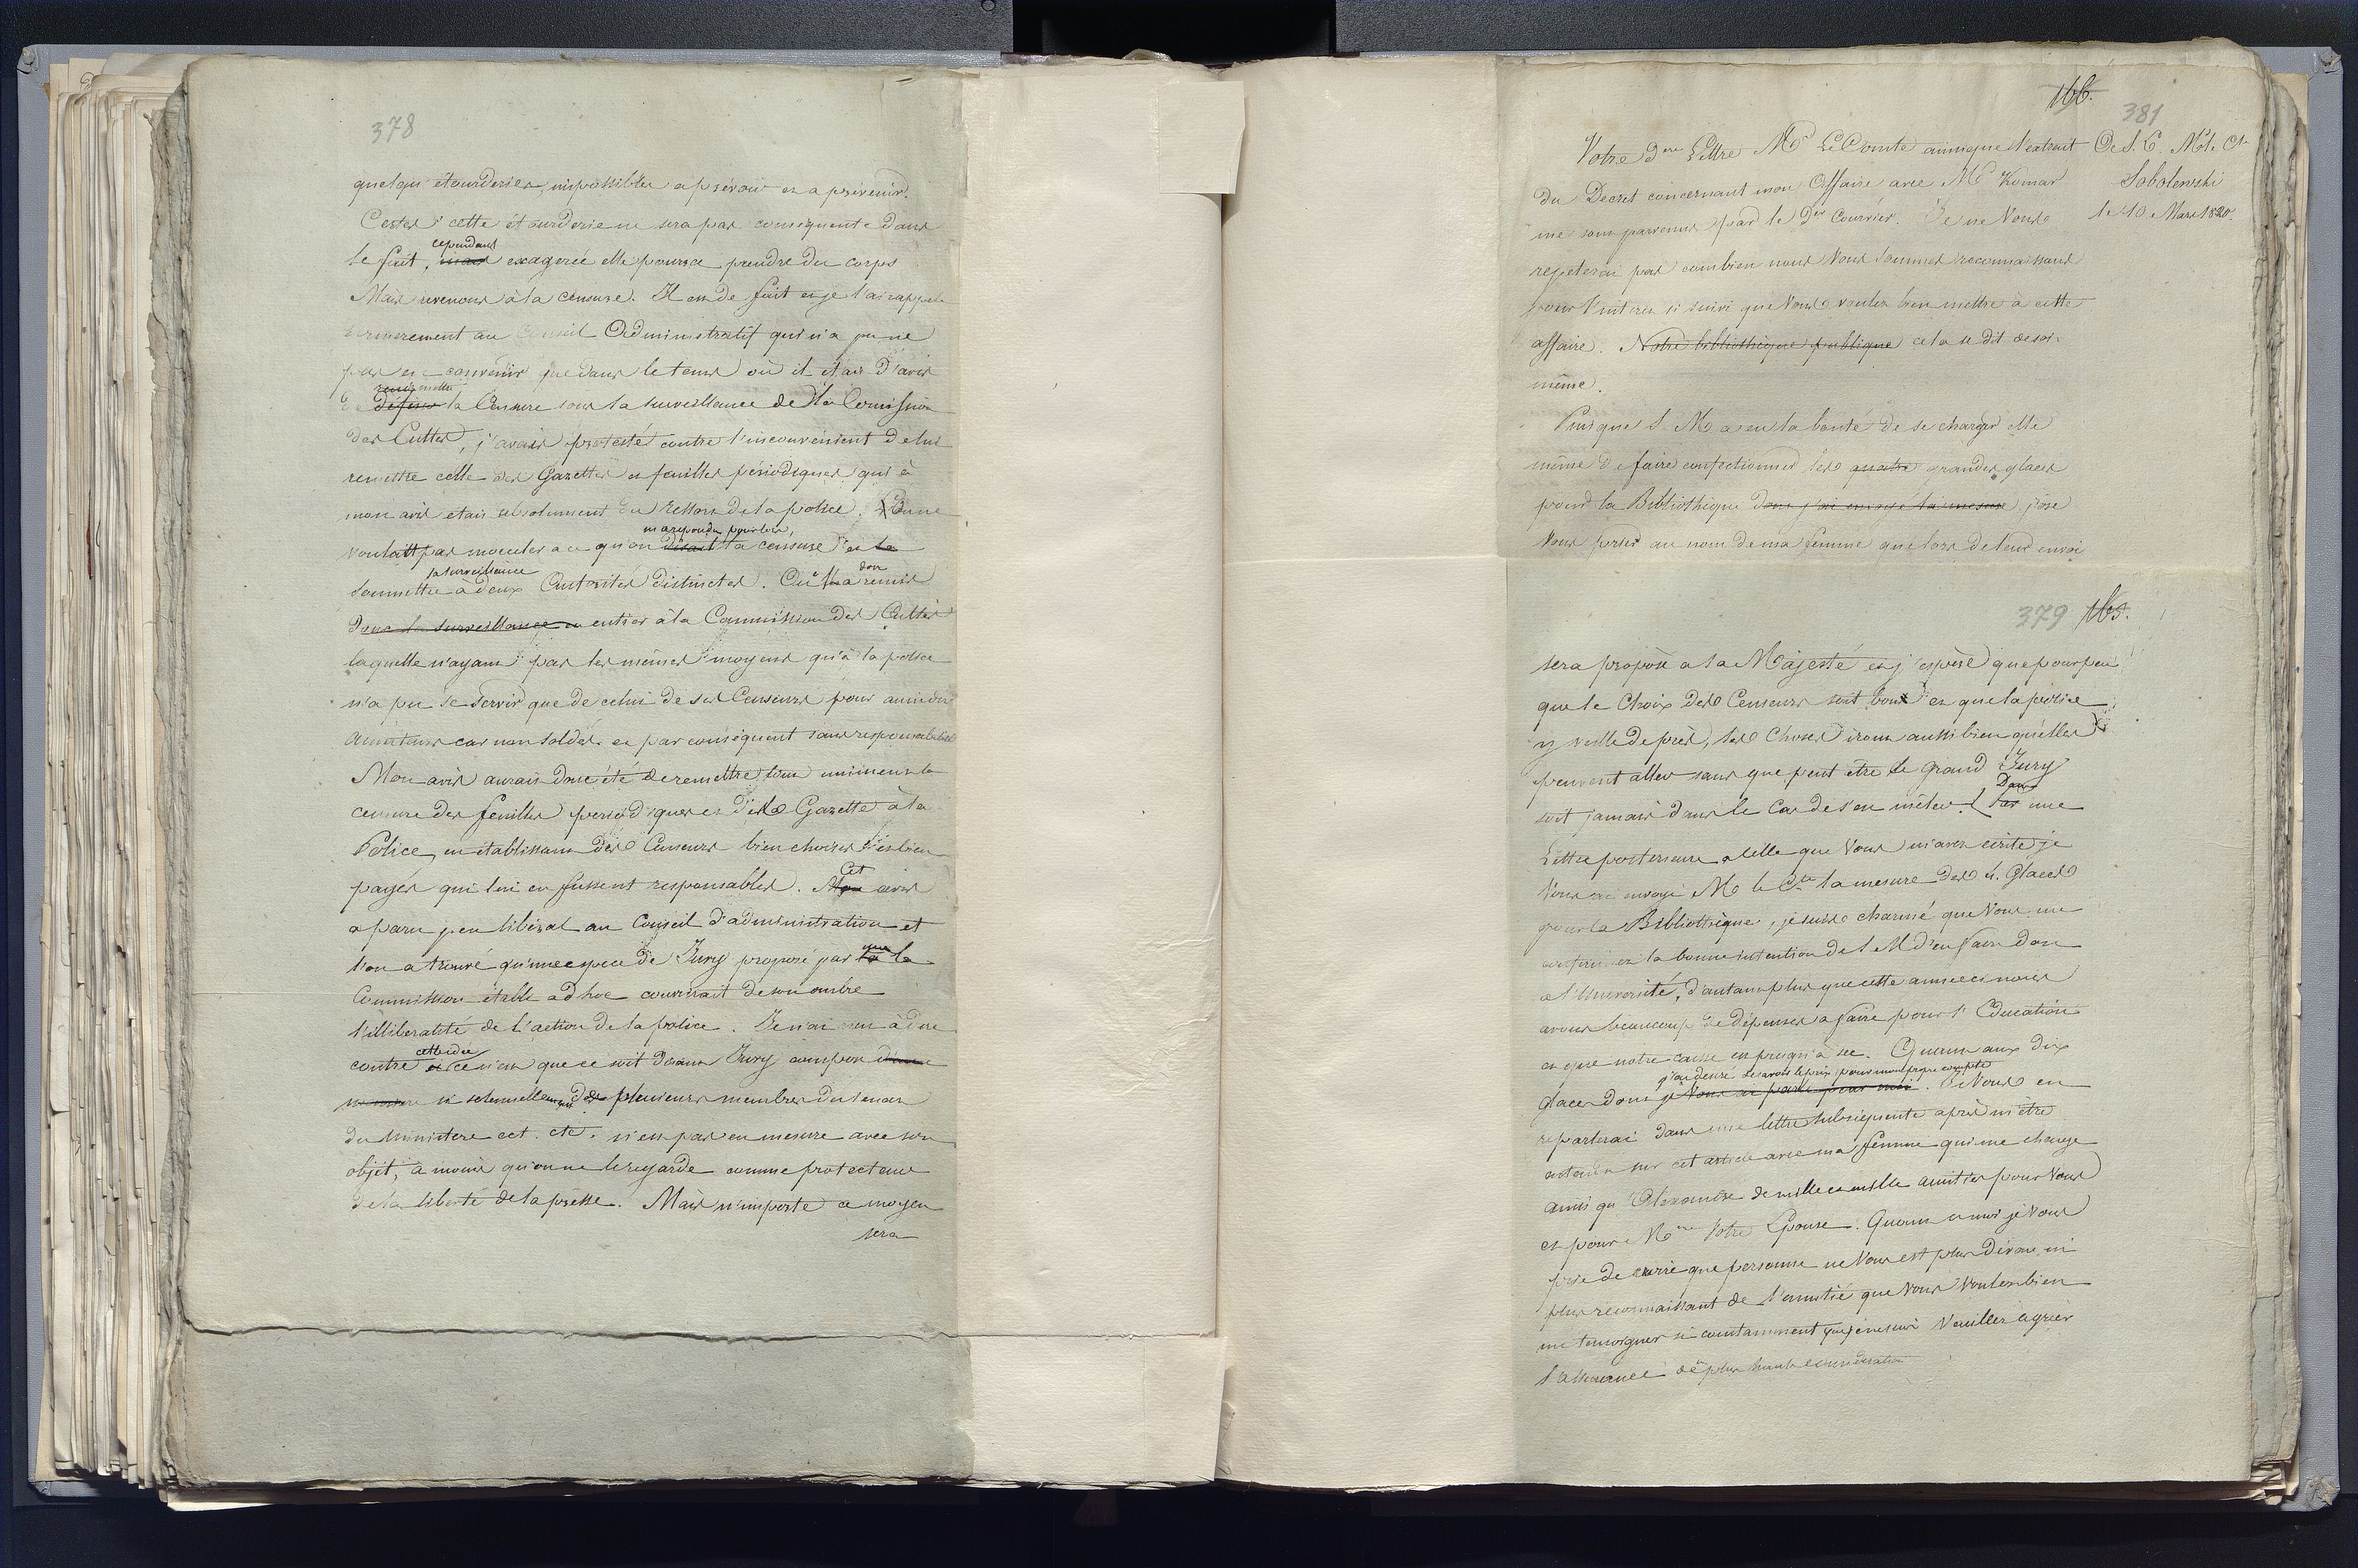 378
quelqu' étourderies, impossibles a prévoir et a prévenir.
Certes cette étourderie ne sera pas consequente dans
le fait, mais cependant exagerée elle pourra prendre du corps
Mais revenons à la Censure. Il est de fait et je l'ai rappelé
dernierement au Conseil Administratif qui n'a pu ne
pas en convenir que dans le tems où il etait d'avis
de la Censure sous la surveillance de la Comission
des Cultes, j'avais protesté contre l'inconvenient de lui
remettre celle des Gazettes et feuilles périodiques qui à
mon avis etait absolument du ressort de la police. On ne
voulait pas morceler a ce qu'on disait m'a repondu pour lors, la censure et la
soumettre la surveillance à deux Autorités distinctes. On l'a don remis
dans la surveillance en entier à la Commission des Cultes
laquelle n'ayant pas les mêmes moyens qu'à la police
n'a pu se servir que de celui de ses Censeurs pour ainsi dire
amateurs car non soldés et par conséquent sans responsabilité
Mon avis aurait donc été de remettre tout uniment la
censure des feuilles periodiques et des Gazette à la
Police, en etablissant des Censeurs bien choisis et bien
payés qui lui en fussent responsables. Mon Cet avis
a paru peu libéral au Conseil d'administration et
l'on a trouvé qu'une espece de Jury proposé par la
Commission établi ad hoc couvrirait de son ombre
l'illiberalité de l'action de la police. Je n'ai rien à dire
contre cette idée si ce n'est que ce soit disant Jury composé d'un
si solennellement de plusieurs membres du Senat
du Ministere ect. etc. n'est pas en mesure avec son
objet, à moins qu'on ne le regarde comme protecteur
de la liberté de la presse. Mais n'importe ce moyen
sera
166.
381
De S. E. Mr le Ct.
Sobolewski
le 10 Mars 1820.
Votre dere Lettre Mr Le Comte ainsi que l'extrait
du Decret concernant mon Affaire avec Mr Komar
me sont parvenus par le Der Courrier. Je ne Vous
repeterai pas combien nous Vous sommes reconnaissans
pour l'interet si suivi que Vous voulez bien mettre à cette
affaire. Notre bibliothèque publique cela se dit de soi-
même.
Puisque S. M a eu la bonté de se charger elle
même de faire confectionner les quatre grandes glaces
pour la Bibliothèque dont j'ai envoyé la mesure, j'ose
Vous prier au nom de ma femme que lors de leur envoi
379 165.
sera proposé a sa Majesté et j'espère que pour peu
que le Choix des Censeurs soit bon et que la police
y veille de près, les Choses iront aussi bien qu'elles
peuvent aller sans que peut etre le grand Jury
soit jamais dans le Cas de s'en mêler. Dans une
Lettre posterieure a celle que Vous m'avez ecrite je
Vous ai envoyé Mr le Cte la mesure des 4. Glaces
pour la Bibliothèque, je suis charmé que Vous me
confirmiez la bonne intention de S M d'en faire don
a l'Université, d'autant plus que cette année ci nous
avons beaucoup de dépenses a faire pour l'Education
et que notre caisse est presqu'à sec. Quant aux dix
glaces dont j'ai desiré de savoir le prix pour mon propre compte je Vous ai parlé pour moi. Je Vous en
reparlerai dans une lettre subsequente après m'être
entendu sur cet article avec ma femme qui me charge
ainsi qu' Alexandre de mille et mille amitiés pour Vous
et pour Mme Votre Epouse. Quant a moi je Vous
prie de croire que personne ne Vous est plus dévoué, ni
plus reconnaissant de l'amitié que Vous voulez bien
me temoigner si constamment que je ne suis Veuillez agréer
l'assurance de plus haute consideration